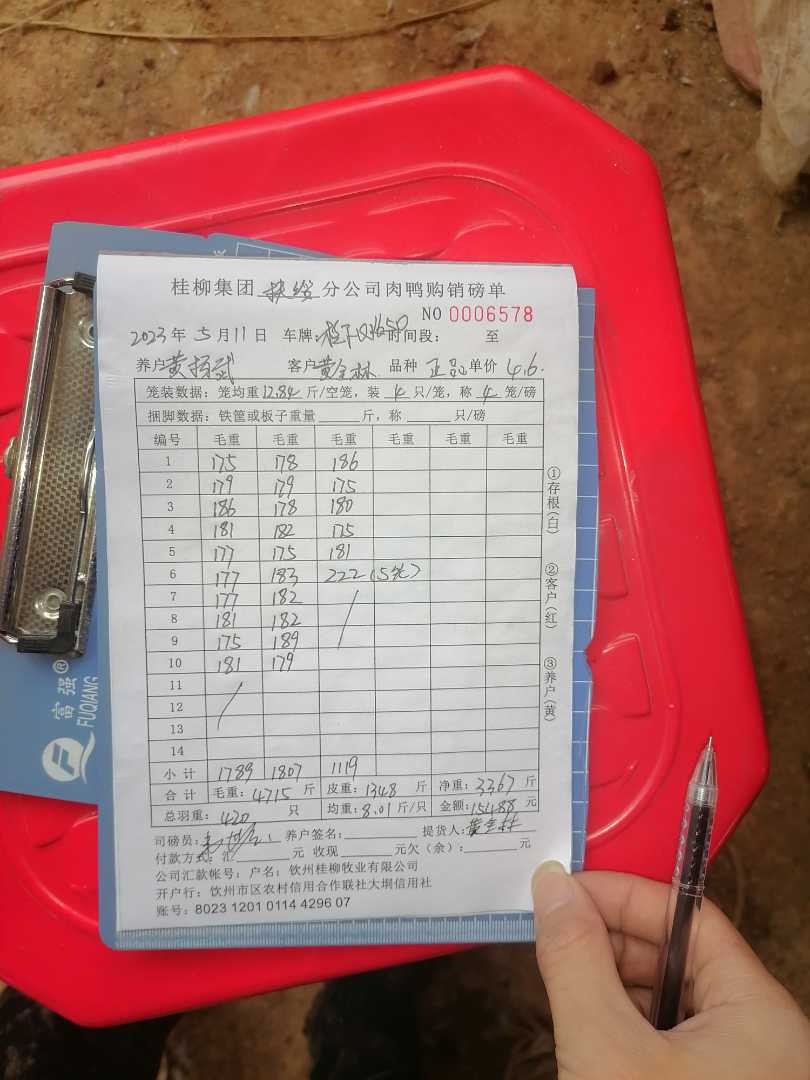 桂柳集团 分公司肉鸭购销磅单
NO 0006578
2023年5月11日 车牌: 时间段: 至
养户 黄扬武 客户 黄全林 品种 正品 单价 4.6.
笼装数据: 笼均重12.84斤/空笼, 装 4 只/笼, 称 4 笼/磅
捆脚数据: 铁筐或板子重量 斤, 称 只/磅
编号 毛重 毛重 毛重 毛重 毛重 毛重
1 175 178 186
2 179 179 175
3 186 178 180
4 181 182 175
5 177 175 181
6 177 183 222(5笼)
7 177 182
8 181 182
9 175 189
10 181 179
11
12
13
14
小计 1789 1807 1119
合计 毛重: 4715 斤 皮重: 1348 斤 净重: 3367 斤
总羽重: 420 只 均重: 8.01斤/只 金额: 15488 元
司磅员: 养户签名: 提货人: 黄全林
付款方式: 汇 元 收现 元欠(余): 元
公司汇款帐号: 户名: 钦州桂柳牧业有限公司
开户行: 钦州市区农村信用合作联社大垌信用社
账号: 8023 1201 0114 4296 07
①存根(白)
②客户(红)
③养户(黄)
富强®
FUQIANG